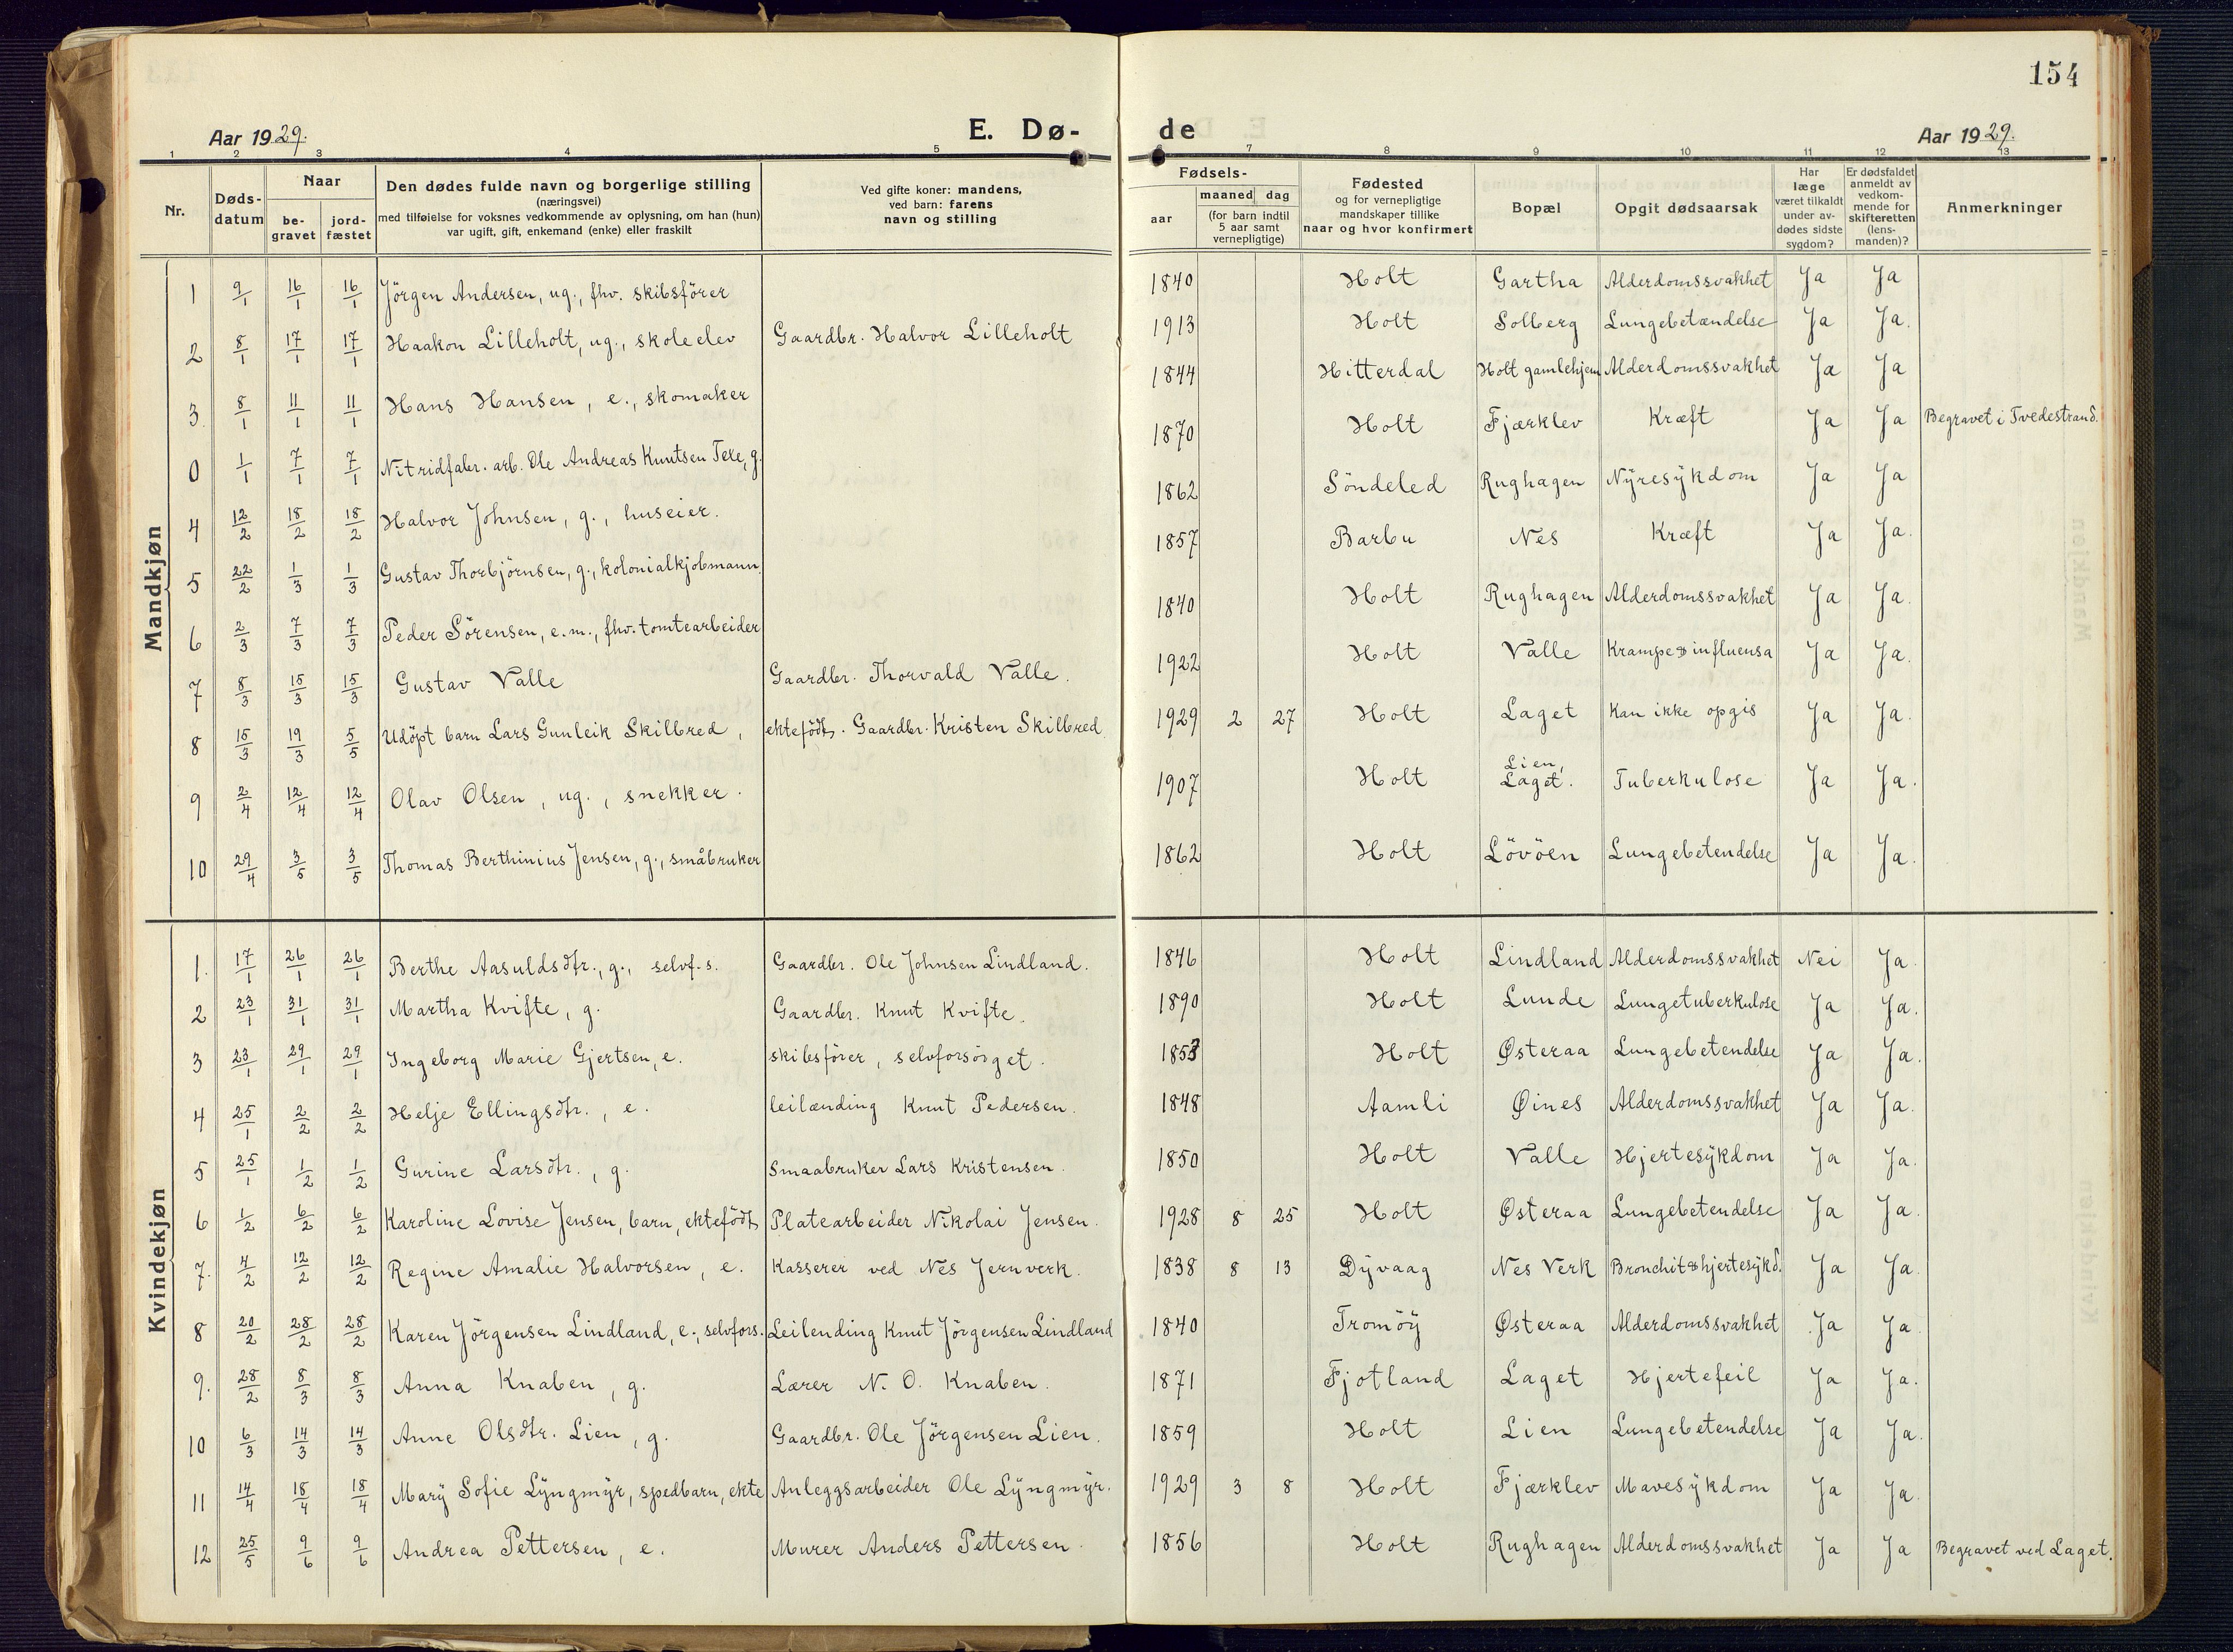 154
Aar 1929. E. Dø- de Aar 1929.
1 2 3 4 5 6 7 8 9 10 11 12 13
Nr. | Døds-datum | Naar be-gravet | jord-fæstet | Den dødes fulde navn og borgerlige stilling (næringsvei) med tilføielse for voksnes vedkommende av oplysning, om han (hun) var ugift, gift, enkemand (enke) eller fraskilt | Ved gifte koner: mandens, ved barn: farens navn og stilling | Fødsels- aar | maaned dag (for barn indtil 5 aar samt vernepligtige) | Fødested og for vernepligtige mandskaper tillike naar og hvor konfirmert | Bopæl | Opgit dødsaarsak | Har læge været tilkaldt under av-dødes sidste sygdom? | Er dødsfaldet anmeldt av vedkom-mende for skifteretten (lens-manden)? | Anmerkninger
Mandkjøn
1 9/1 16/1 16/1 Jörgen Andersen, ug., fhv. skibsförer 1840 Holt Gartha Alderdomssvakhet Ja Ja
2 8/1 17/1 17/1 Haakon Lilleholt, ug., skoleelev Gaardbr. Halvor Lilleholt 1913 Holt Solberg Lungebetændelse Ja Ja.
3. 8/1 11/1 11/1 Hans Hansen, e., skomaker 1844 Hitterdal Holt gamlehjem Alderdomssvakhet Ja Ja
0 1/1 7/1 7/1 Nitridfabr. arb. Ole Andreas Knutsen Texe, g. 1870 Holt Fjærklev Kræft Ja Ja Begravet i Tvedestrand.
4 12/2 18/2 18/2 Halvor Johnsen, g., huseier. 1862 Söndeled Rughagen Nyresykdom Ja Ja
5 22/2 1/3 1/3 Gustav Thorbjörnsen, g., kolonialkjöbmann. 1857 Barbu Nes Kræft Ja Ja.
6 2/3 7/3 7/3 Peder Sörensen, e.m., fhv. tomtearbeider 1840 Holt Rughagen Alderdomssvakhet Ja Ja.
7 8/3 15/3 15/3 Gustav Valle Gaardbr. Thorvald Valle. 1922 Holt Valle Krampe & influensa Ja Ja.
8 15/3 19/3 5/5 Udöpt barn Lars Gunleik Skilbred, ektefödt. Gaardbr. Kristen Skilbred. 1929 2 27 Holt Laget Kan ikke opgis Ja Ja.
9 2/4 12/4 12/4 Olav Olsen, ug., snekker. 1907 Holt Lien, Laget. Tuberkulose Ja Ja.
10 29/4 3/5 3/5 Thomas Berthinius Jensen, g., småbruker 1862 Holt Lövöen Lungebetendelse Ja Ja.
Kvindekjøn
1. 17/1 26/1 26/1 Berthe Aasuldsdtr., g., selvf.s. Gaardbr. Ole Johnsen Lindland. 1846 Holt Lindland Alderdomssvakhet Nei Ja.
2 23/1 31/1 31/1 Martha Kvifte, g. Gaardbr. Knut Kvifte. 1890 Holt Lunde Lungetuberkulose Ja Ja.
3 23/1 29/1 29/1 Ingeborg Marie Gjertsen, e. skibsförer, selvforsörget. 1853 Holt Østeraa Lungebetendelse Ja Ja.
4 25/1 2/2 2/2 Helje Ellingsdtr., e. leilænding Knut Pedersen. 1848 Aamli Øines Alderdomssvakhet Ja Ja.
5 25/1 1/2 1/2 Gurine Larsdtr., g. Smaabruker Lars Kristensen. 1850 Holt Valle Hjertesykdom Ja Ja.
6 1/2 6/2 6/2 Karoline Lovise Jensen, barn, ektefödt Platearbeider Nikolai Jensen. 1928 8 25 Holt Østeraa Lungebetendelse Ja Ja.
7. 4/2 12/2 12/2 Regine Amalie Halvorsen, e. Kasserer ved Nes Jernverk. 1838 8 13 Dyvaag Nes Verk Bronchit & hjertesykd. Ja Ja.
8 20/2 28/2 28/2 Karen Jörgensen Lindland, e., selvfors. Leilending Knut Jörgensen Lindland 1840 Tromöy Østeraa Alderdomssvakhet Ja Ja.
9. 28/2 8/3 8/3 Anna Knaben, g. Lærer N. O. Knaben. 1871 Fjotland Laget Hjertefeil Ja Ja.
10 6/3 14/3 14/3 Anne Olsdtr. Lien, g. Gaardbr. Ole Jörgensen Lien. 1859 Holt Lien Lungebetendelse Ja Ja.
11 14/4 18/4 18/4 Mary Sofie Lyngmyr, spedbarn, ekte Anleggsarbeider Ole Lyngmyr. 1929 3 8 Holt Fjærklev Mavesykdom Ja Ja.
12 25/5 9/6 9/6 Andrea Pettersen, e. Murer Anders Pettersen. 1856 Holt Rughagen Alderdomssvakhet Ja Ja Begravet ved Laget.